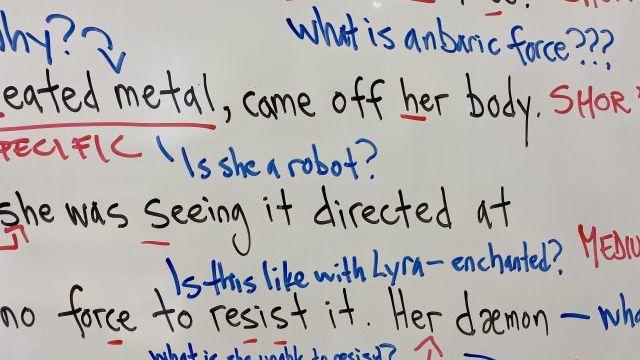 hy?
What is anbaric force???
eated metal, came off her body. SHOR
PECIFIC Is she a robot?
she was seeing it directed at
MEDIU
Is this like with Lyra – enchanted?
no force to resist it. Her dæmon – wha
What is she unable to resist?